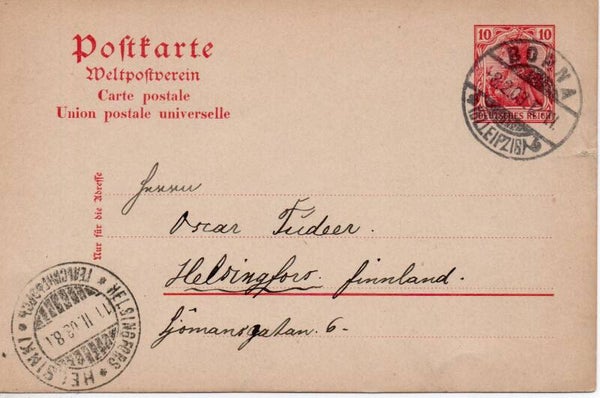 Postkarte
Weltpostverein
Carte postale
Union postale universelle
10 10
DEUTSCHES REICH
BORNA
(BZ.LEIPZIG)
Nur für die Adresse
Herrn
Oscar Tudeer.
Helsingfors. Finnland.
Sjömansgatan. 6-
HELSINGFORS
HELSINKI